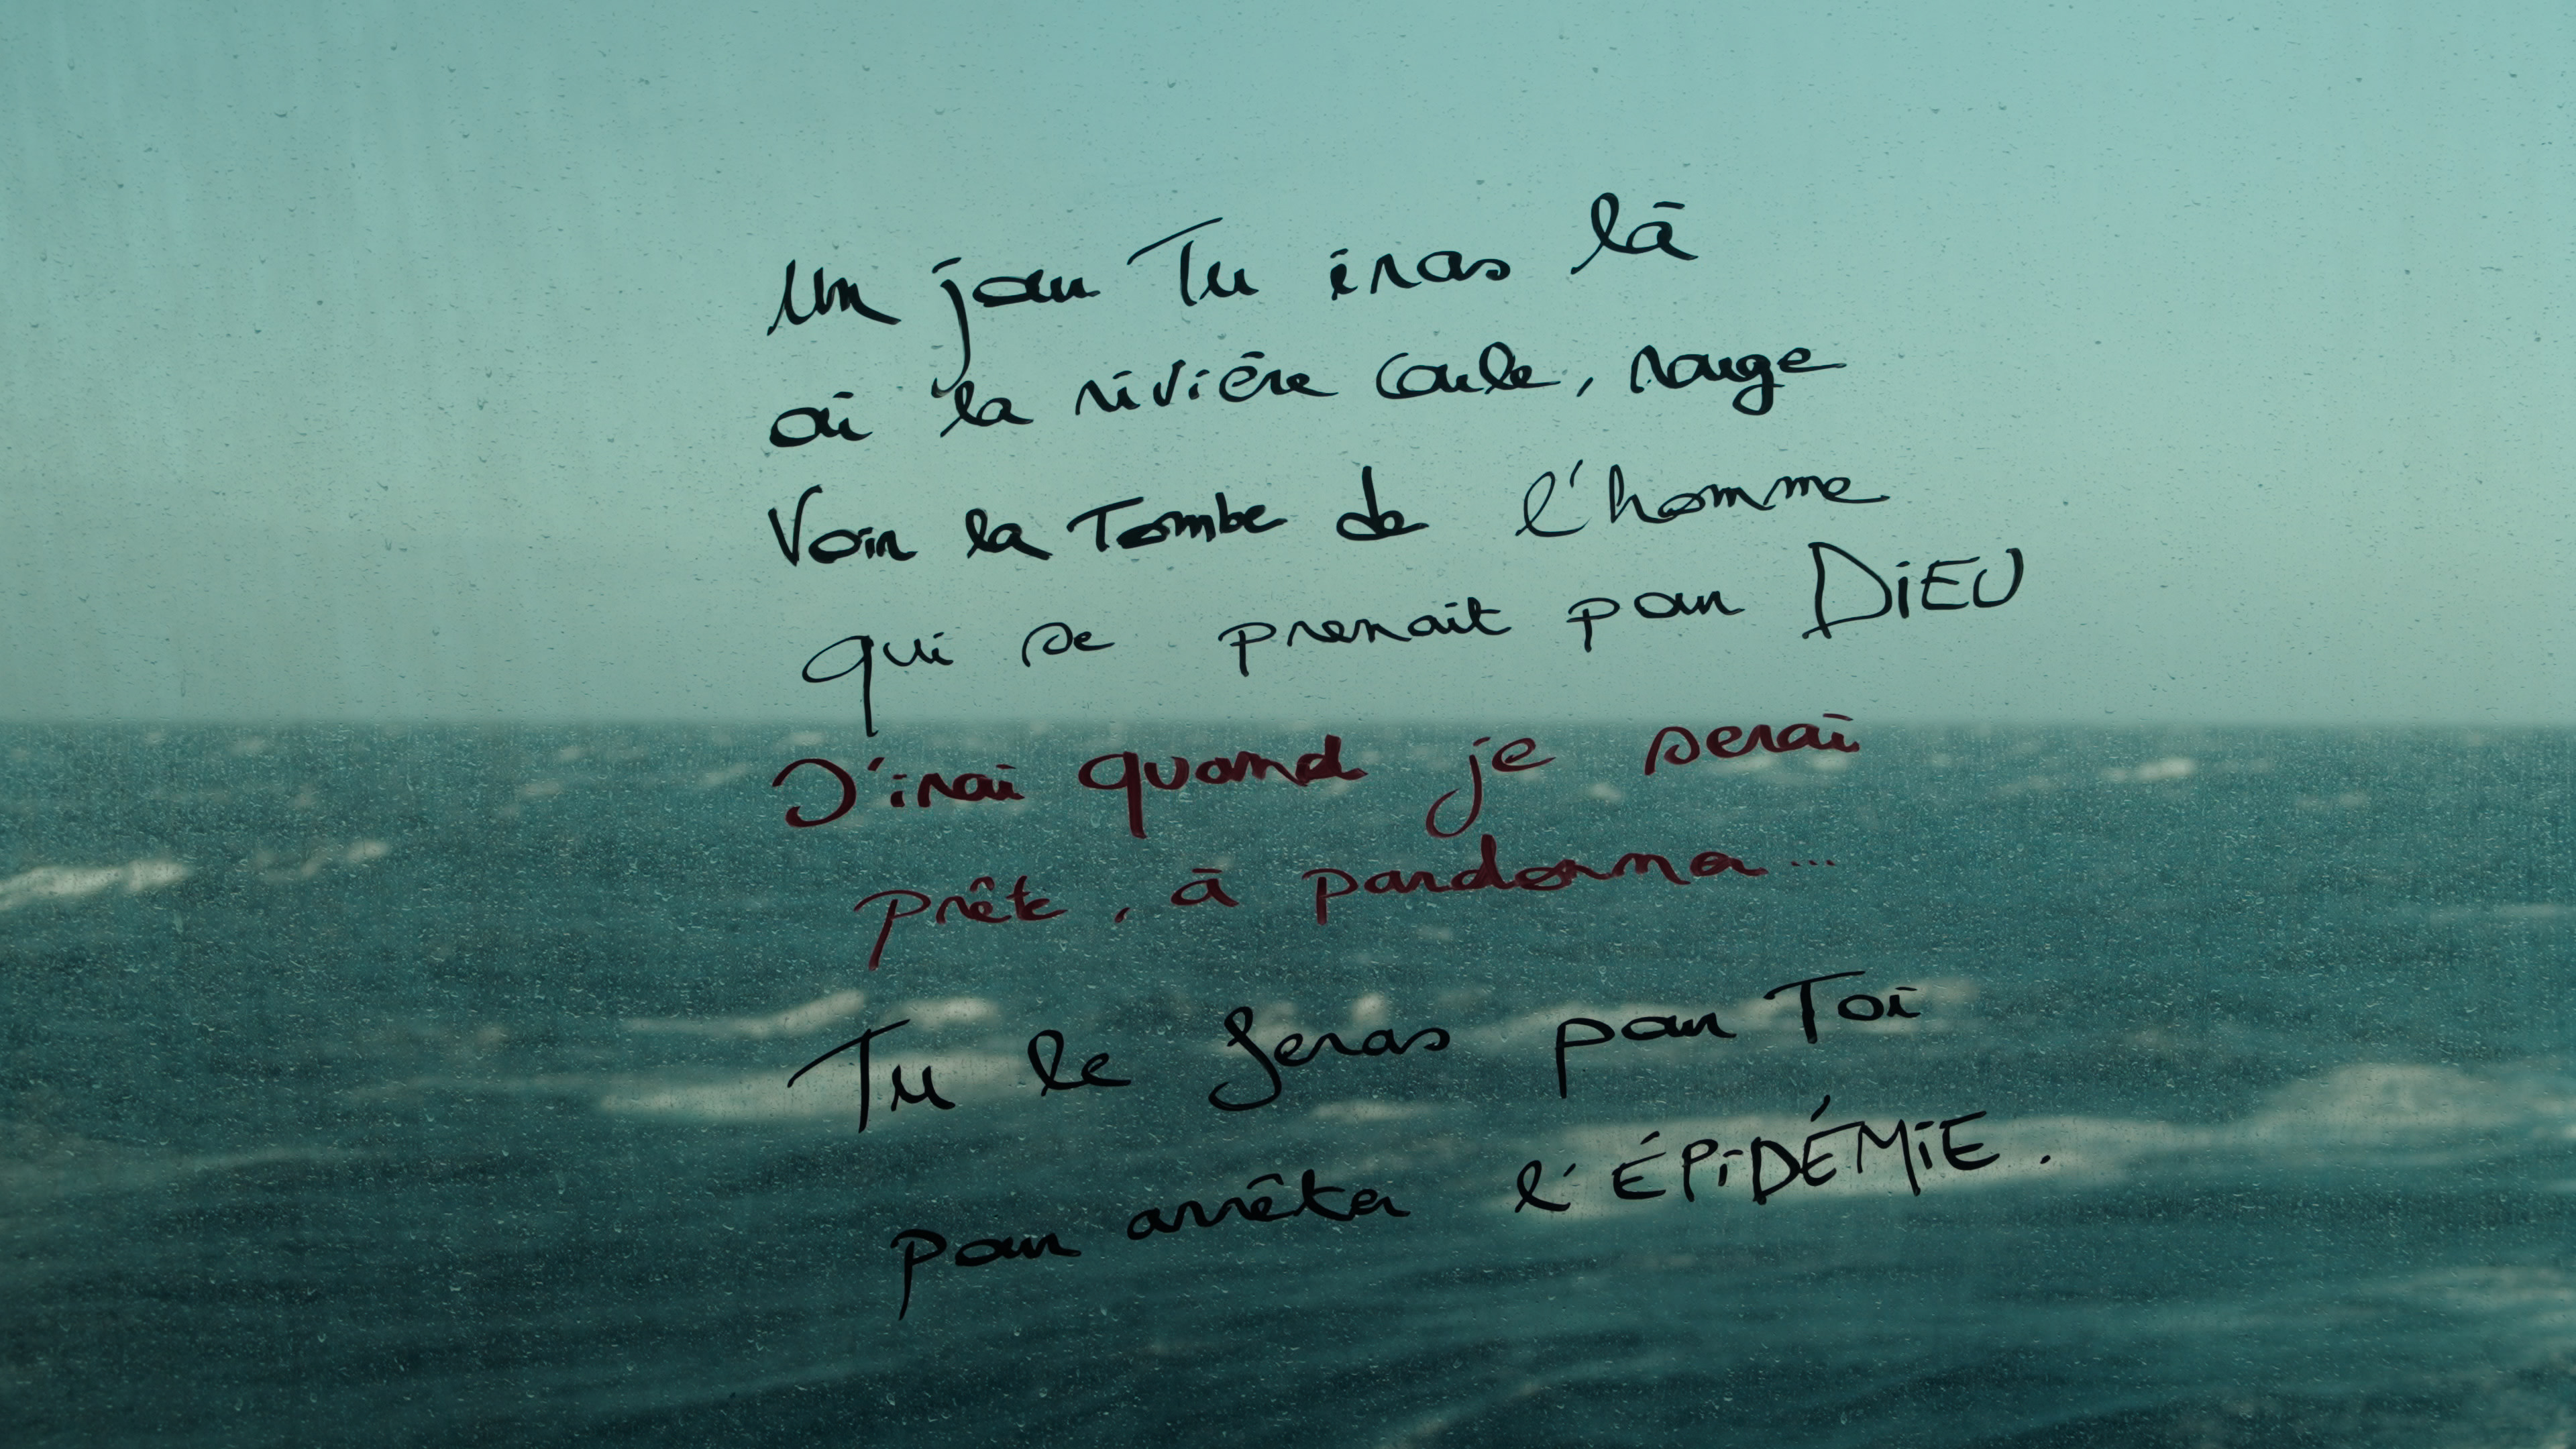 Un jour Tu iras là
où la rivière coule, rouge
Voir la Tombe de l'homme
qui se prenait pour DiEU
J'irai quand je serai
prête, à pardonner...
Tu le feras pour Toi
pour arrêter l'ÉPiDÉMiE.